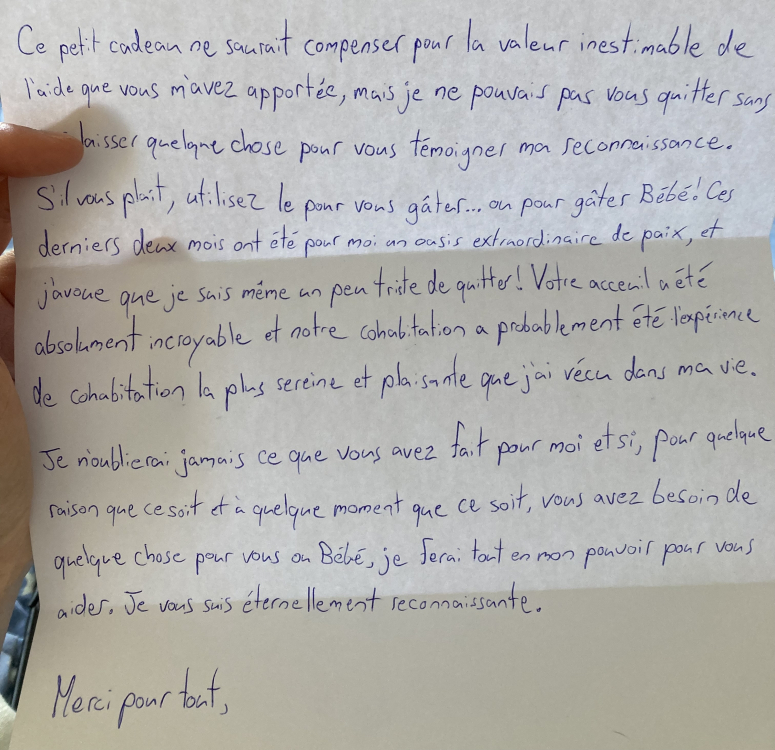 Ce petit cadeau ne saurait compenser pour la valeur inestimable de
l'aide que vous m'avez apportée, mais je ne pouvais pas vous quitter sans
laisser quelque chose pour vous témoigner ma reconnaissance.
S'il vous plaît, utilisez le pour vous gâter... ou pour gâter Bébé! Ces
derniers deux mois ont été pour moi un oasis extraordinaire de paix, et
j'avoue que je suis même un peu triste de quitter! Votre acceuil a été
absolument incroyable et notre cohabitation a probablement été l'expérience
de cohabitation la plus sereine et plaisante que j'ai vécu dans ma vie.
Je n'oublierai jamais ce que vous avez fait pour moi et si, pour quelque
raison que ce soit et à quelque moment que ce soit, vous avez besoin de
quelque chose pour vous ou Bébé, je ferai tout en mon pouvoir pour vous
aider. Je vous suis éternellement reconnaissante.
Merci pour tout,